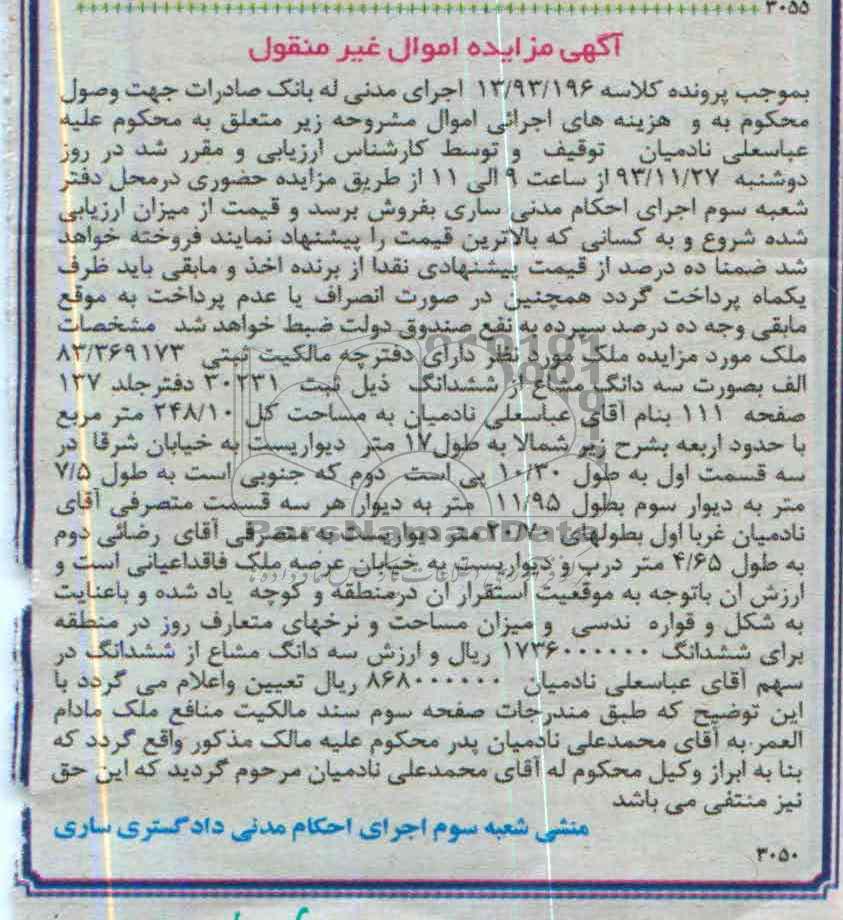 ۳۰۵۵
آگهی مزایده اموال غیر منقول
بموجب پرونده کلاسه ۱۳/۹۳/۱۹۶ اجرای مدنی له بانک صادرات جهت وصول
محکوم به و هزینه های اجرائی اموال مشروحه زیر متعلق به محکوم علیه
عباسعلی نادمیان توقیف و توسط کارشناس ارزیابی و مقرر شد در روز
دوشنبه ۹۳/۱۱/۲۷ از ساعت ۹ الی ۱۱ از طریق مزایده حضوری درمحل دفتر
شعبه سوم اجرای احکام مدنی ساری بفروش برسد و قیمت از میزان ارزیابی
شده شروع و به کسانی که بالاترین قیمت را پیشنهاد نمایند فروخته خواهد
شد ضمنا ده درصد از قیمت پیشنهادی نقدا از برنده اخذ و مابقی باید ظرف
یکماه پرداخت گردد همچنین در صورت انصراف یا عدم پرداخت به موقع
مابقی وجه ده درصد سپرده به نفع صندوق دولت ضبط خواهد شد مشخصات
ملک مورد مزایده ملک مورد نظر دارای دفترچه مالکیت ثبتی ۸۳/۳۶۹۱۷۳
الف بصورت سه دانگ مشاع از ششدانگ ذیل ثبت ۳۰۲۳۱ دفترجلد ۱۳۷
صفحه ۱۱۱ بنام آقای عباسعلی نادمیان به مساحت کل ۲۴۸/۱۰ متر مربع
با حدود اربعه بشرح زیر شمالا به طول۱۷ متر دیواریست به خیابان شرقا در
سه قسمت اول به طول ۱۰/۳۰ پی است دوم که جنوبی است به طول ۷/۵
متر به دیوار سوم بطول ۱۱/۹۵ متر به دیوار هر سه قسمت متصرفی آقای
نادمیان غربا اول بطولهای ۲۱/۷۰ متر دیواریست به متصرفی آقای رضائی دوم
به طول ۴/۶۵ متر درب و دیواریست به خیابان عرصه ملک فاقداعیانی است و
ارزش ان باتوجه به موقعیت استقرار ان درمنطقه و کوچه یاد شده و باعنایت
به شکل و قواره ندسی و میزان مساحت و نرخهای متعارف روز در منطقه
برای ششدانگ ۱۷۳۶۰۰۰۰۰۰ ریال و ارزش سه دانگ مشاع از ششدانگ در
سهم آقای عباسعلی نادمیان ۸۶۸۰۰۰۰۰۰ ریال تعیین واعلام می گردد با
این توضیح که طبق مندرجات صفحه سوم سند مالکیت منافع ملک مادام
العمر به آقای محمدعلی نادمیان پدر محکوم علیه مالک مذکور واقع گردد که
بنا به ابراز وکیل محکوم له آقای محمدعلی نادمیان مرحوم گردید که این حق
نیز منتفی می باشد
منشی شعبه سوم اجرای احکام مدنی دادگستری ساری
۳۰۵۰
ParsNamadData